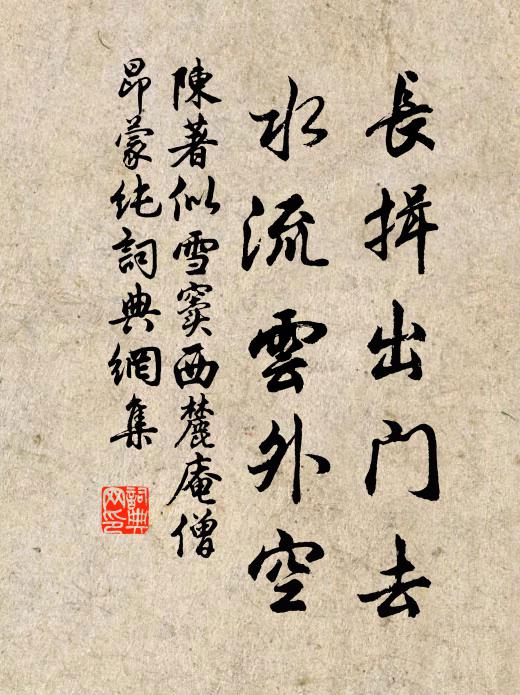 長揖出門去
水流雲外空
陳著似雪竇西麓庵僧
昂蒙純詞典網集
詞典网印